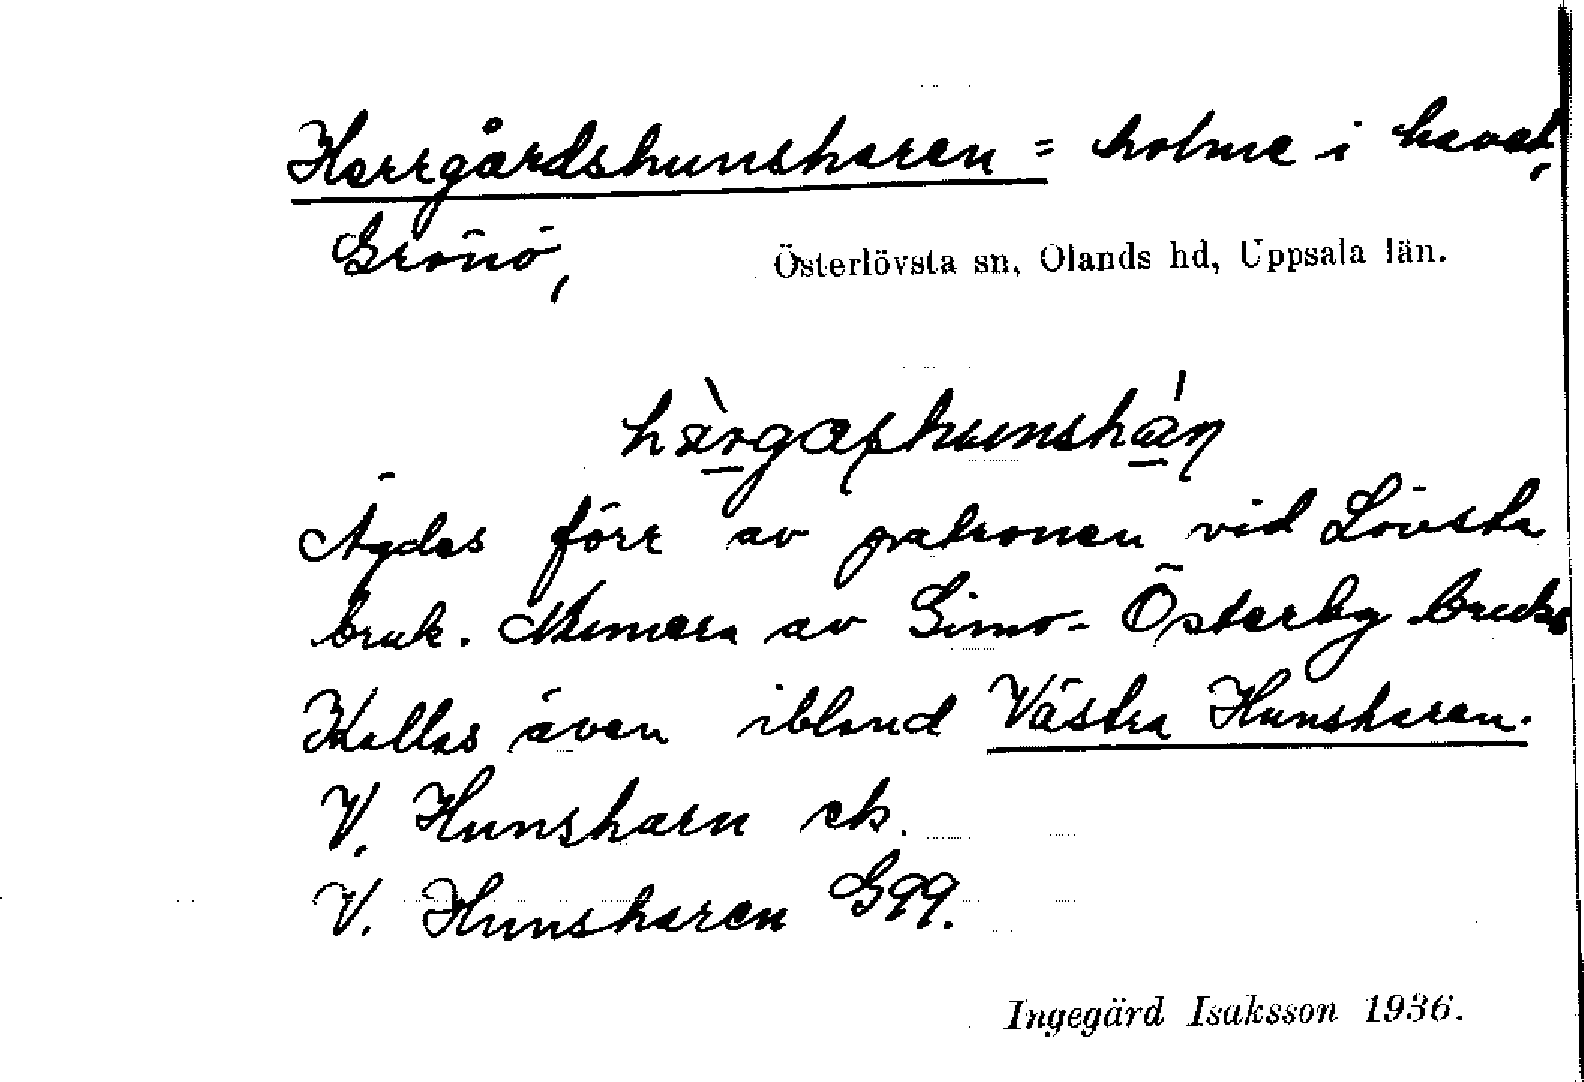 Herrgårdshunsharen = holme i havet,
Grönö, Österlövsta sn, Olands hd, Uppsala län.
Ägdes förr av patronen vid Lövsta
bruk. Numera av Gimo-Österby bruk
Kallas även ibland Västra Hunsharen.
V. Hunsharn ek.
V. Hunsharen G99.
Ingegärd Isaksson 1936.